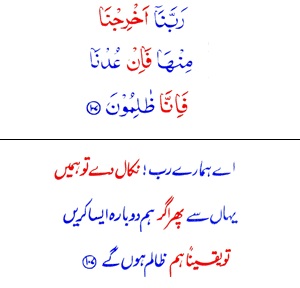 رَبَّنَاۤ اَخْرِجْنَا
مِنْهَا فَاِنْ عُدْنَا
فَاِنَّا ظٰلِمُوْنَ ﴿۱۰۷﴾
اے ہمارے رب! نکال دے تو ہمیں
یہاں سے پھر اگر ہم دوبارہ ایسا کریں
تو یقیناً ہم ظالم ہوں گے ﴿۱۰۷﴾